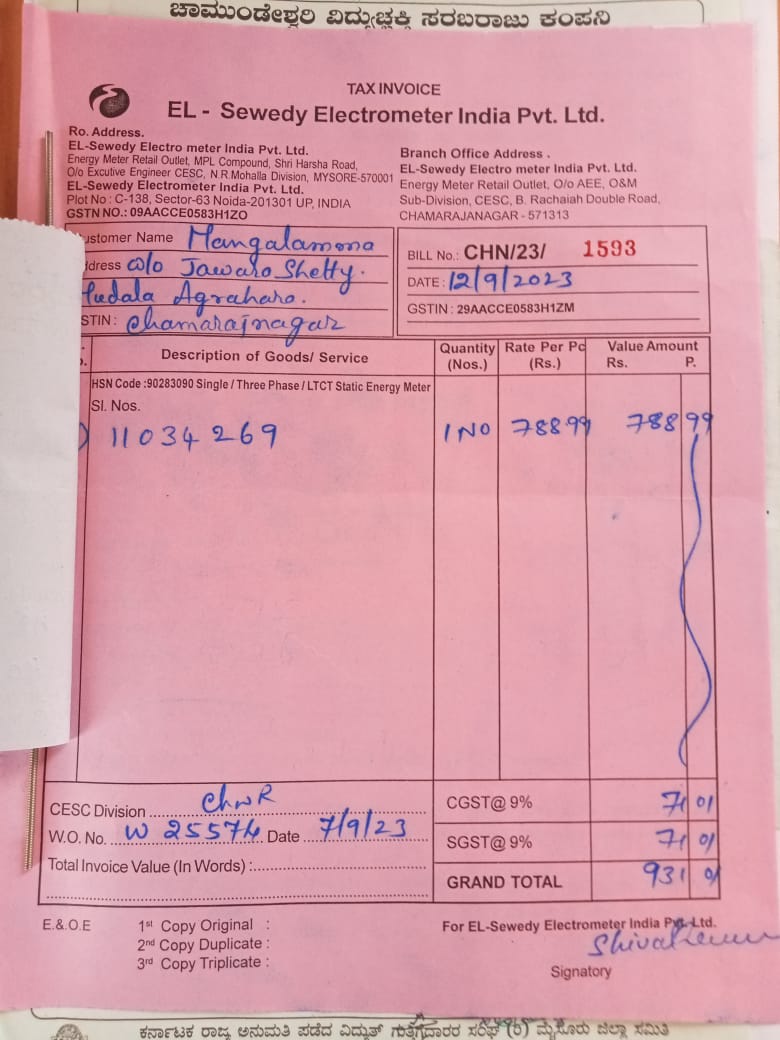 ಚಾಮುಂಡೇಶ್ವರಿ ವಿದ್ಯುಚ್ಛಕ್ತಿ ಸರಬರಾಜು ಕಂಪನಿ
TAX INVOICE
EL - Sewedy Electrometer India Pvt. Ltd.
Ro. Address.
EL-Sewedy Electro meter India Pvt. Ltd.
Energy Meter Retail Outlet, MPL Compound, Shri Harsha Road,
O/o Excutive Engineer CESC, N.R.Mohalla Division, MYSORE-570001
EL-Sewedy Electrometer India Pvt. Ltd.
Plot No : C-138, Sector-63 Noida-201301 UP, INDIA
GSTN NO.: 09AACCE0583H1ZO
Branch Office Address .
EL-Sewedy Electro meter India Pvt. Ltd.
Energy Meter Retail Outlet, O/o AEE, O&M
Sub-Division, CESC, B. Rachaiah Double Road,
CHAMARAJANAGAR - 571313
ustomer Name Mangalamma
dress w/o Jawara Shetty.
Agrahara.
STIN : Chamarajnagar
BILL No.: CHN/23/ 1593
DATE : 12/9/2023
GSTIN : 29AACCE0583H1ZM
Description of Goods/ Service Quantity (Nos.) Rate Per Pc (Rs.) Value Amount Rs. P.
HSN Code :90283090 Single / Three Phase / LTCT Static Energy Meter
Sl. Nos.
) 11034269 1 NO 788.99 788 99
CESC Division ChnR
W.O. No. W 25574 Date 7/9/23
Total Invoice Value (In Words) :
CGST@ 9% 71 01
SGST@ 9% 71 01
GRAND TOTAL 931 01
E.&.O.E
1st Copy Original :
2nd Copy Duplicate :
3rd Copy Triplicate :
For EL-Sewedy Electrometer India Pvt. Ltd.
Signatory
ಕರ್ನಾಟಕ ರಾಜ್ಯ ಅನುಮತಿ ಪಡೆದ ವಿದ್ಯುತ್ ಗುತ್ತಿಗೆದಾರರ ಸಂಘ (ರಿ) ಮೈಸೂರು ಜಿಲ್ಲಾ ಸಮಿತಿ